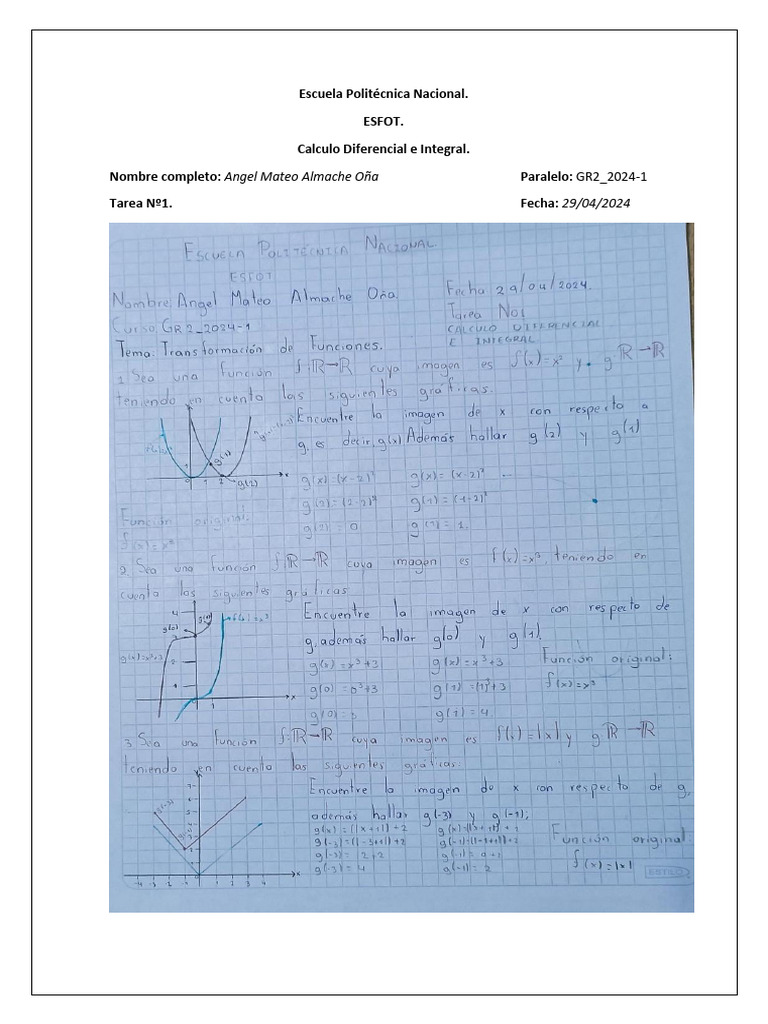 Escuela Politécnica Nacional.
ESFOT.
Calculo Diferencial e Integral.
Nombre completo: Angel Mateo Almache Oña Paralelo: GR2_2024-1
Tarea Nº1. Fecha: 29/04/2024
ESCUELA POLITÉCNICA NACIONAL
ESFOT
Nombre: Angel Mateo Almache Oña. Fecha 29/04/2024.
Curso: GR2_2024-1 Tarea No1
CALCULO DIFERENCIAL
Tema: Transformación de Funciones. E INTEGRAL
1. Sea una función f: ℝ→ℝ cuya imagen es f(x)=x² y g ℝ→ℝ
teniendo en cuenta las siguientes gráficas.
Encuentre la imagen de x con respecto a
g, es decir, g(x) Además hallar g(2) y g(1)
g(1)
g(2)
g(x)=(x-2)² g(x)=(x-2)²
g(2)=(2-2)² g(1)=(1-2)²
g(2)=0 g(1)=1.
Función original:
f(x)=x²
2. Sea una función f: ℝ→ℝ cuya imagen es f(x)=x³, teniendo en
cuenta las siguientes gráficas
Encuentre la imagen de x con respecto de
g, además hallar g(0) y g(1).
g(0)
g(x)=x³+3
g(x)=x³+3 g(x)=x³+3 Función original:
g(0)=0³+3 g(1)=(1)³+3 f(x)=x³
g(1)=4
3. Sea una función f: ℝ→ℝ cuya imagen es f(x)=|x| y g ℝ→ℝ
teniendo en cuenta las siguientes gráficas.
Encuentre la imagen de x con respecto de g,
además hallar g(-3) y g(-1).
g(x)=(|x+1|)+2
g(-3)=(|-3+1|)+2
g(-3)=2+2 g(-1)=0+2
g(-3)=4 g(-1)=2
Función original:
f(x)=|x|
ESTILO